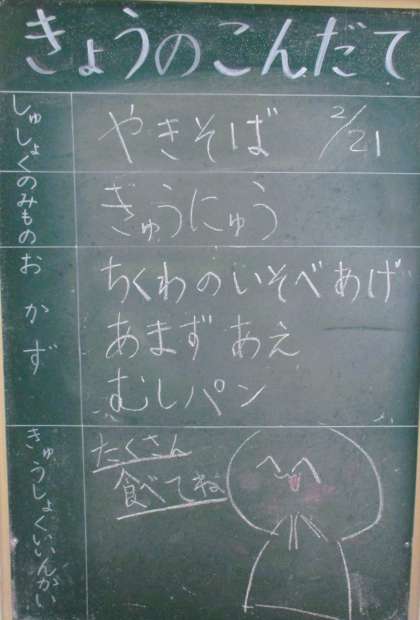 きょうのこんだて
しゅしょく
やきそば 2/21
のみもの
ぎゅうにゅう
おかず
ちくわのいそべあげ
あまずあえ
むしパン
きゅうしょくいいんかい
たくさん
食べてね